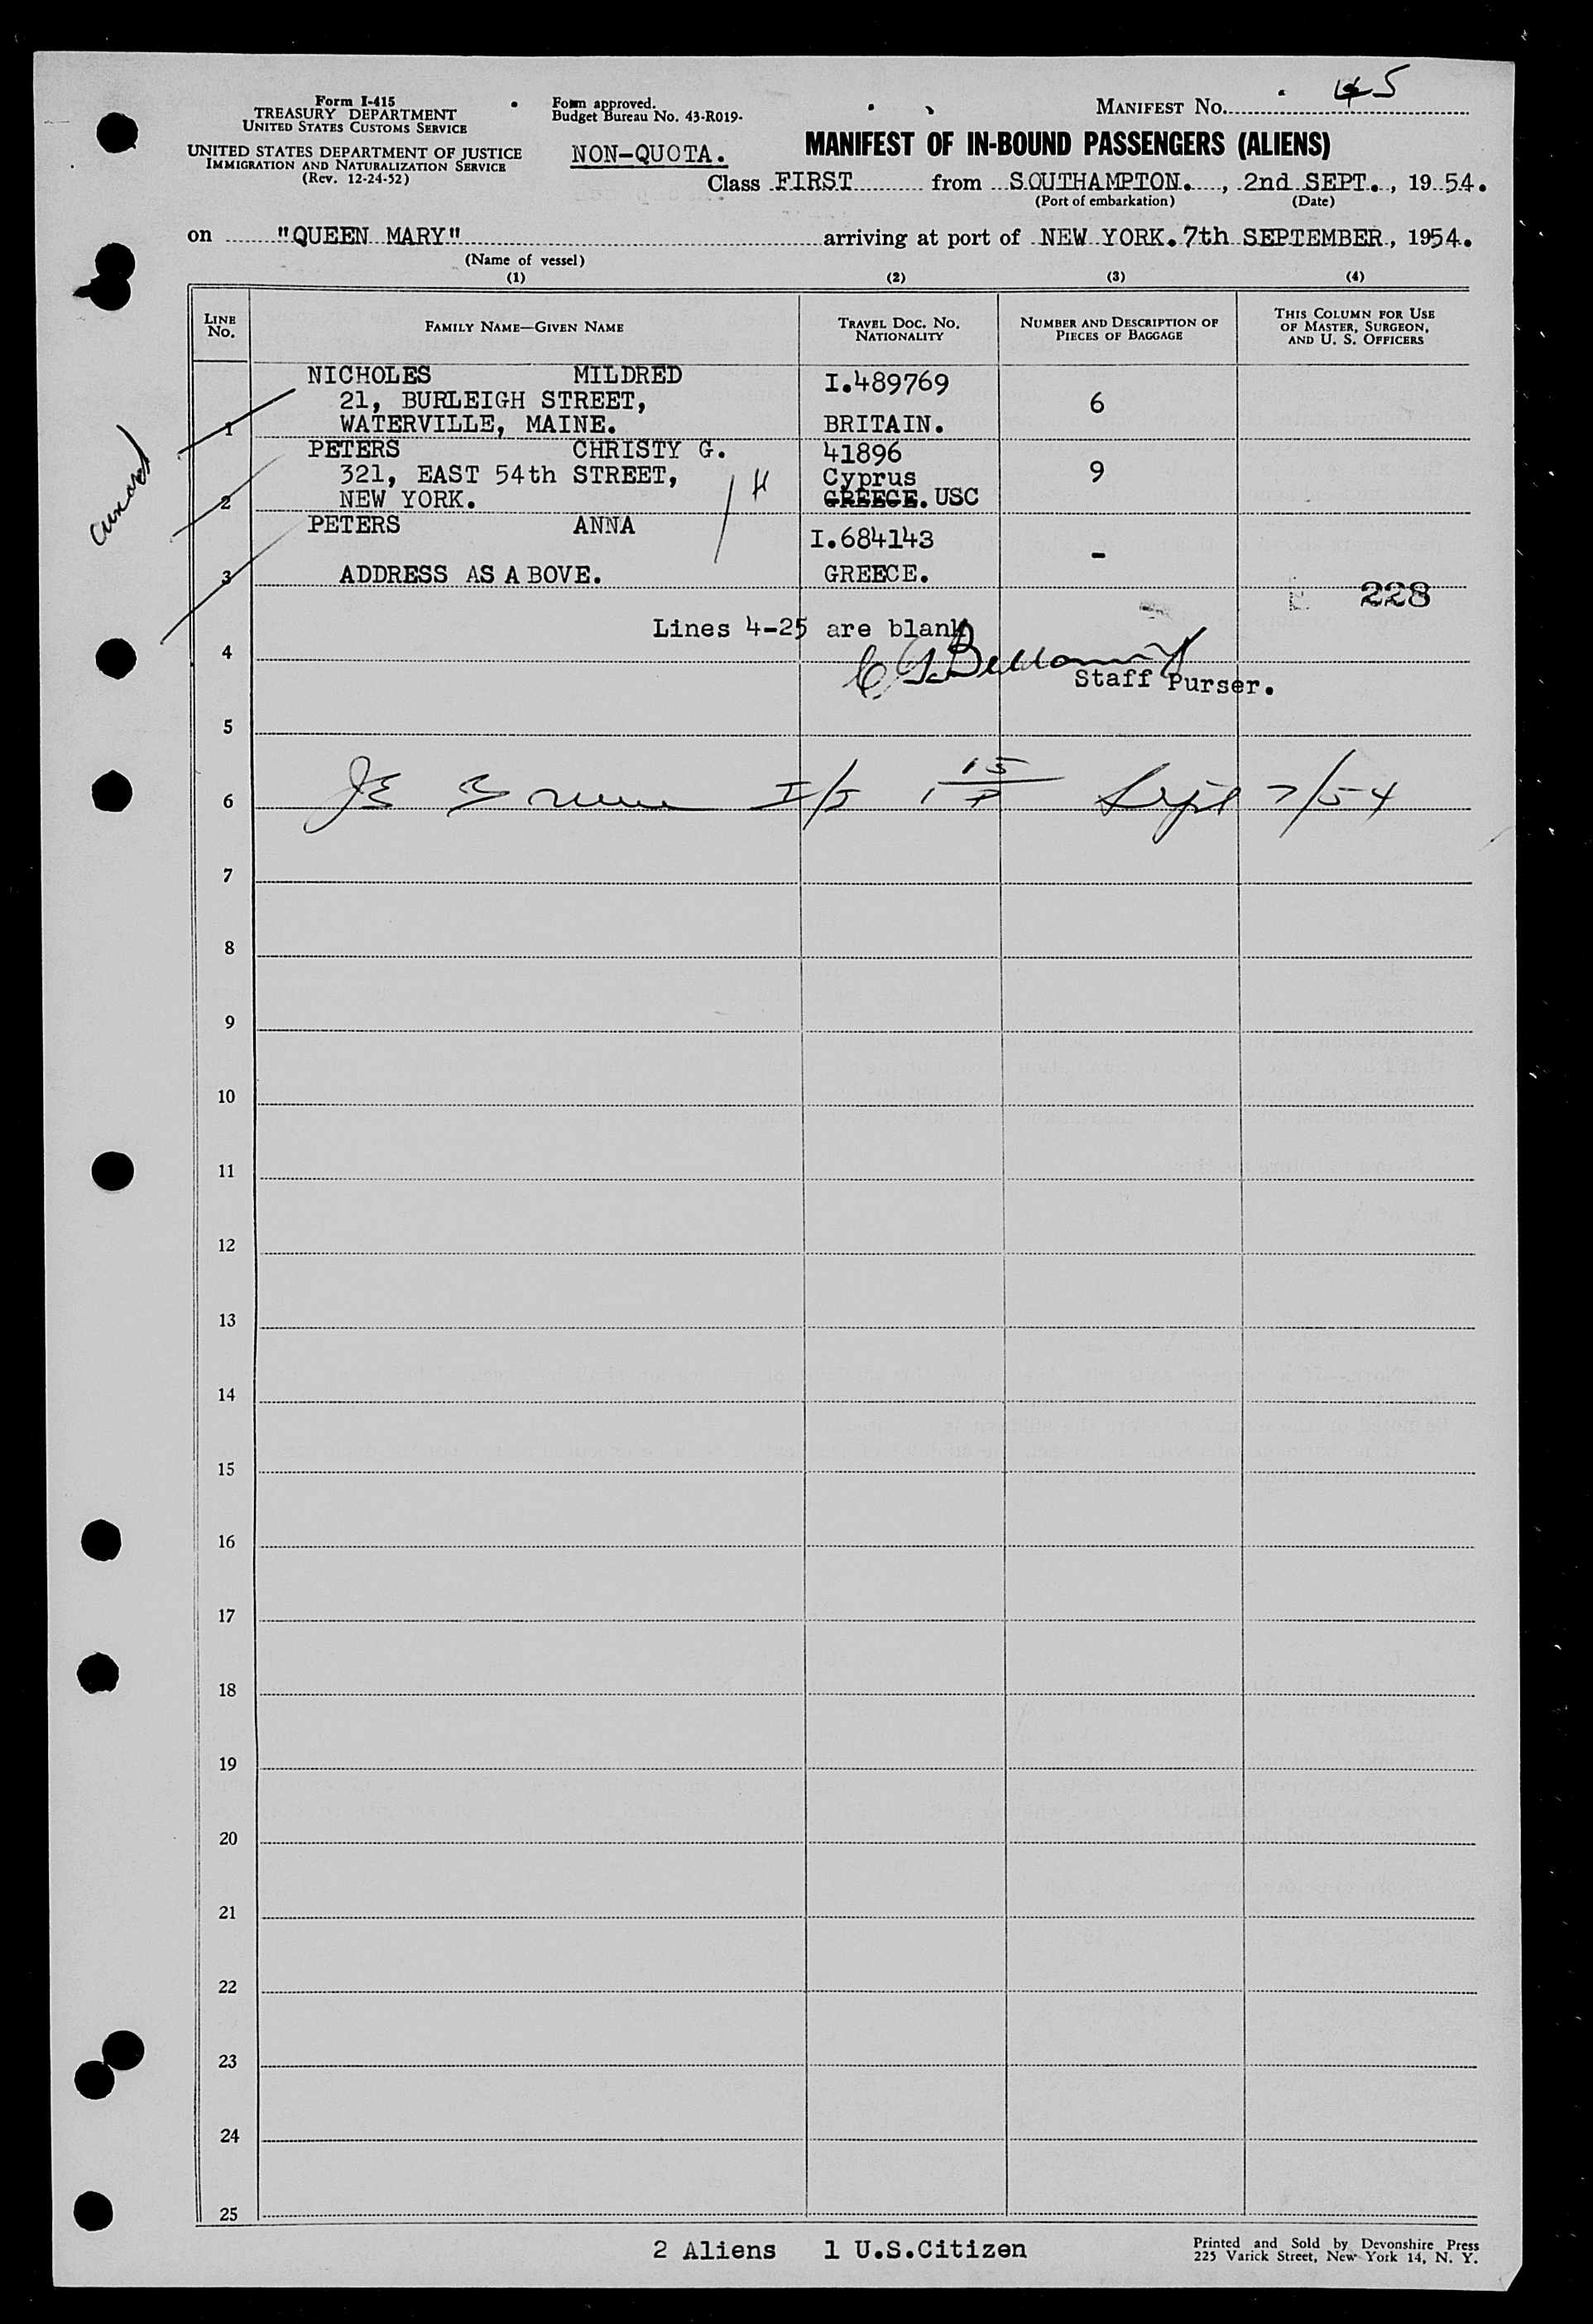 Form I-415
TREASURY DEPARTMENT
UNITED STATES CUSTOMS SERVICE
UNITED STATES DEPARTMENT OF JUSTICE
IMMIGRATION AND NATURALIZATION SERVICE
(Rev. 12-24-52)
Form approved.
Budget Bureau No. 43-R019-
NON-QUOTA.
MANIFEST No. 5
MANIFEST OF IN-BOUND PASSENGERS (ALIENS)
Class FIRST from SOUTHAMPTON., 2nd SEPT., 1954.
(Port of embarkation) (Date)
on "QUEEN MARY" arriving at port of NEW YORK. 7th SEPTEMBER, 1954.
(Name of vessel)
(1) (2) (3) (4)
LINE No. FAMILY NAME—GIVEN NAME TRAVEL DOC. No. NATIONALITY NUMBER AND DESCRIPTION OF PIECES OF BAGGAGE THIS COLUMN FOR USE OF MASTER, SURGEON, AND U. S. OFFICERS
NICHOLES MILDRED I.489769
21, BURLEIGH STREET, 6
1 WATERVILLE, MAINE. BRITAIN.
PETERS CHRISTY G. 41896
321, EAST 54th STREET, Cyprus 9
2 NEW YORK. GREECE. USC
PETERS ANNA I.684143 -
3 ADDRESS AS ABOVE. GREECE.
228
Lines 4-25 are blank
4
Staff Purser.
5
6 Sept 7/54
7
8
9
10
11
12
13
14
15
16
17
18
19
20
21
22
23
24
25
2 Aliens 1 U.S.Citizen
Printed and Sold by Devonshire Press
225 Varick Street, New York 14, N. Y.